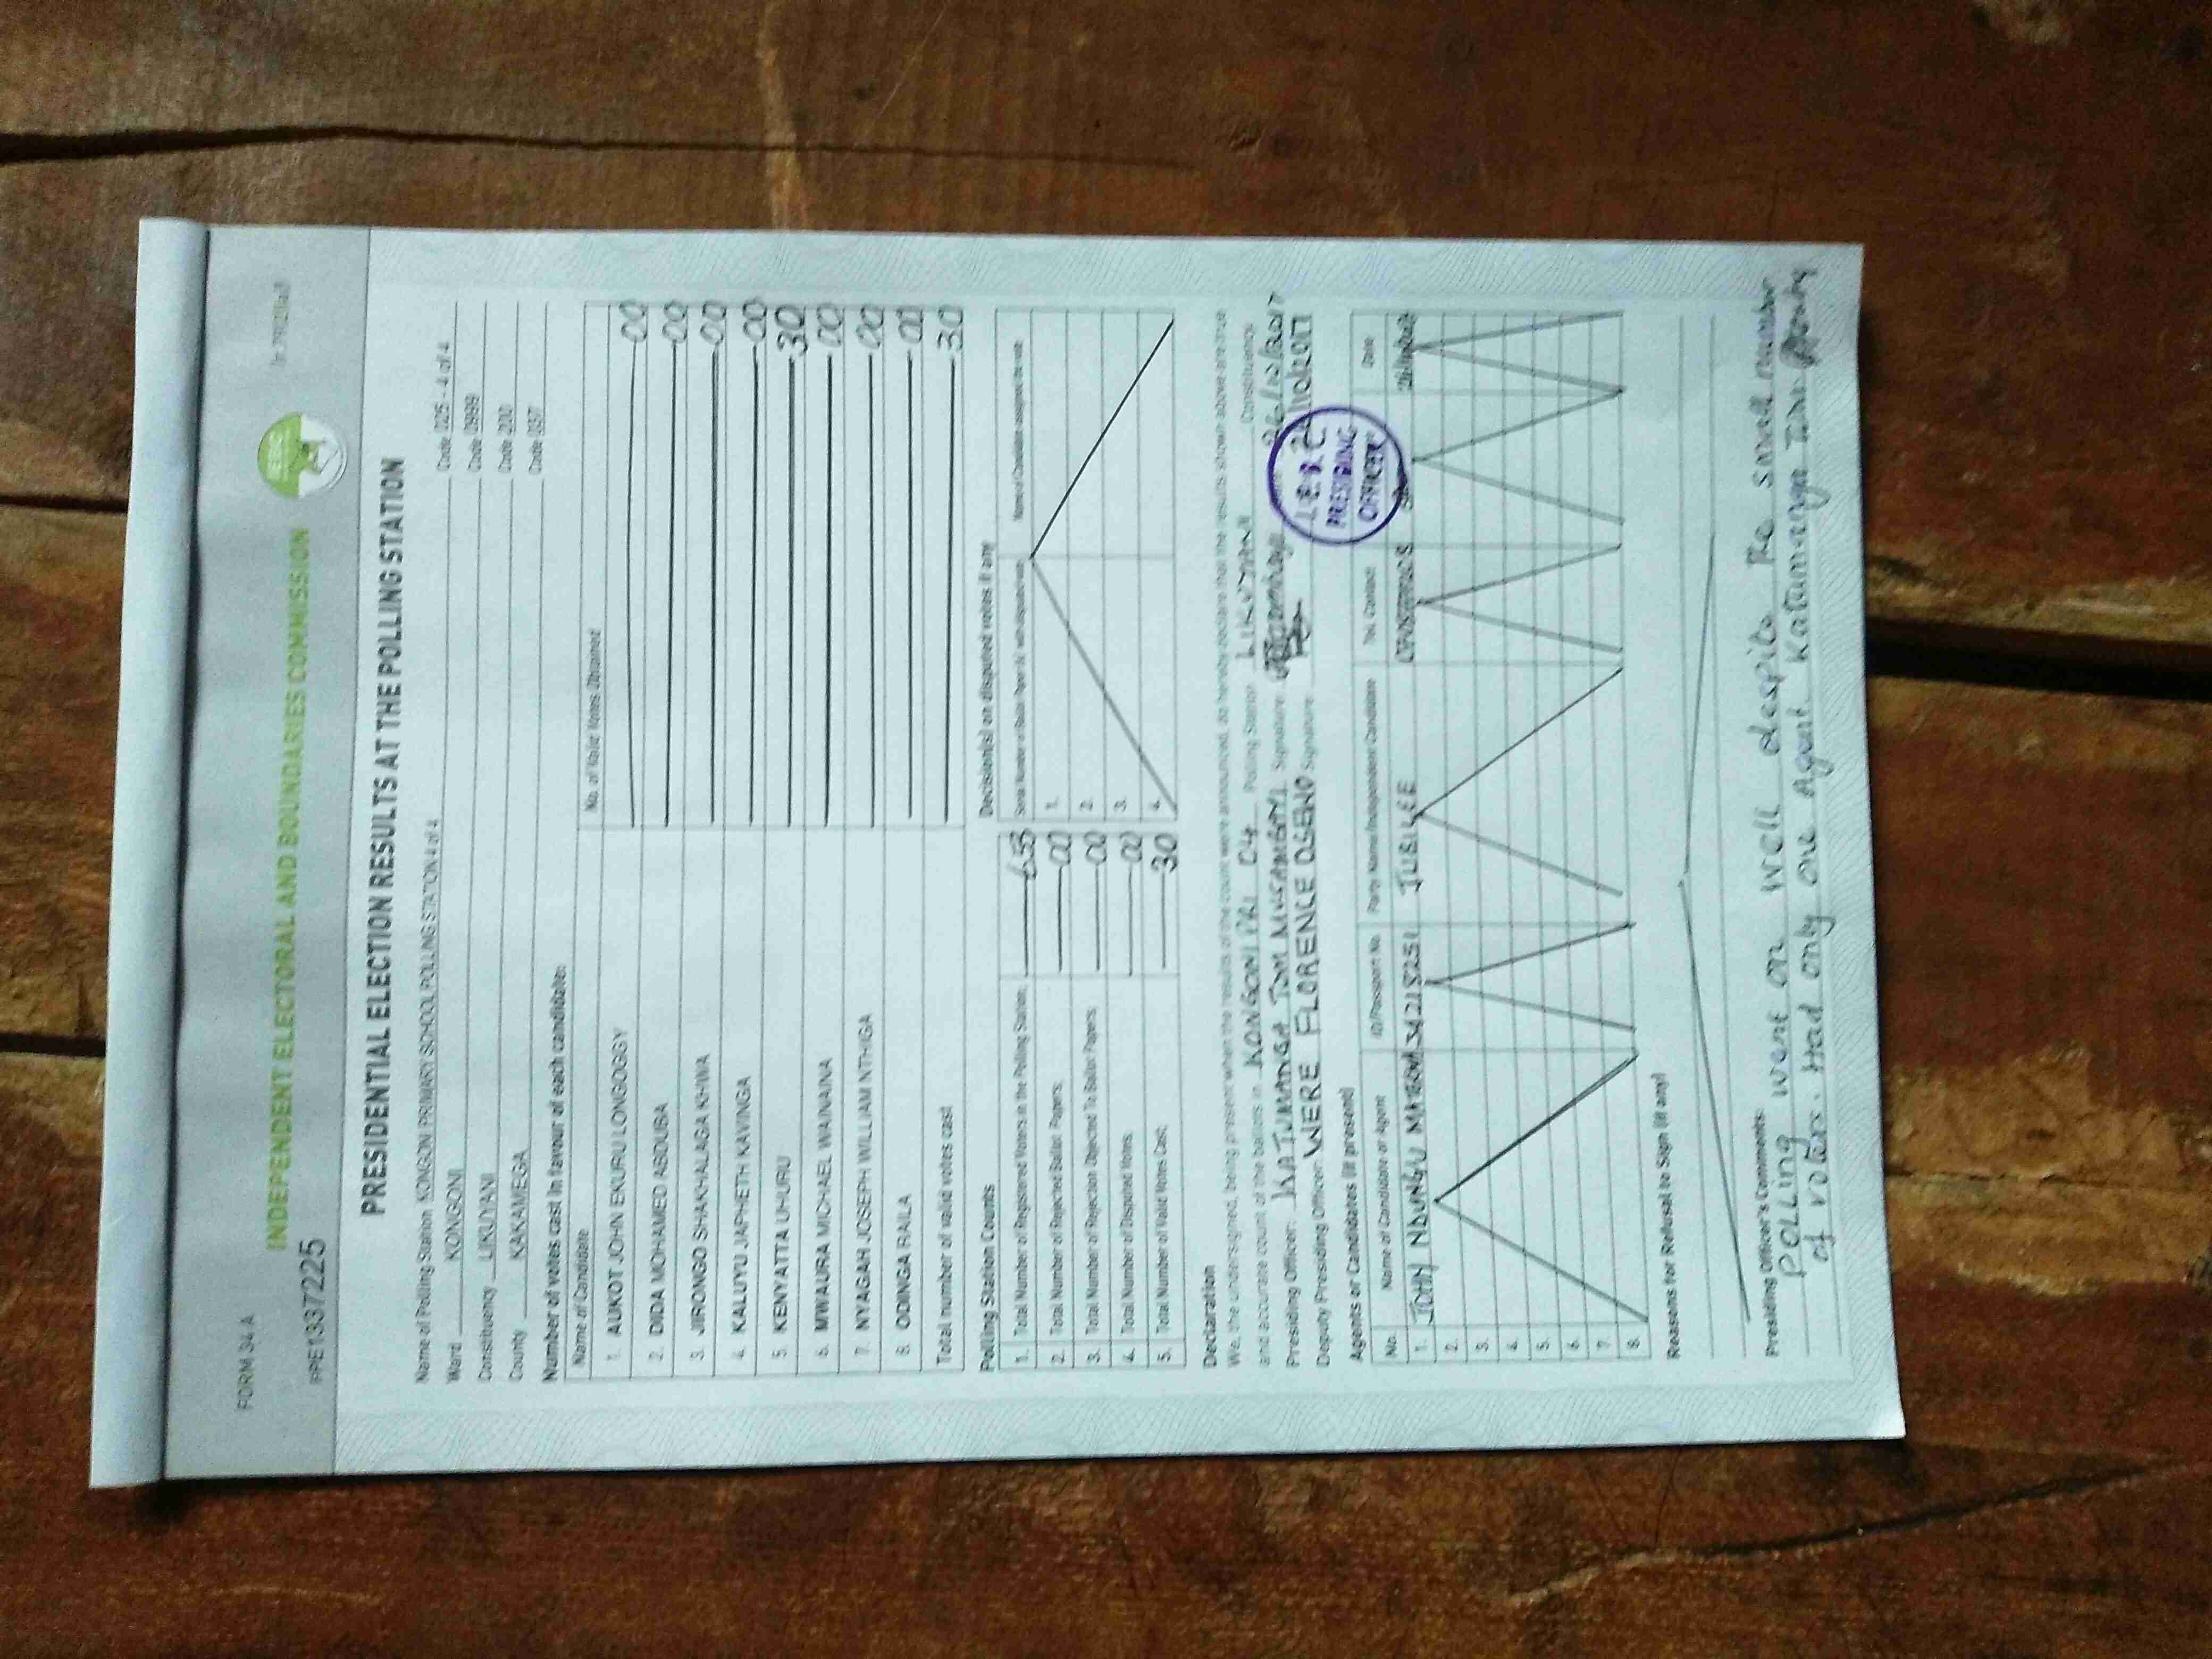 FORM 34 A
INDEPENDENT ELECTORAL AND BOUNDARIES COMMISSION
IEBC
#PE1337225
PRESIDENTIAL ELECTION RESULTS AT THE POLLING STATION
Name of Polling Station KONGONI PRIMARY SCHOOL POLLING STATION 4 of 4 Code 025 - 4 of 4
Ward KONGONI Code 0999
Constituency LIKUYANI Code 200
County KAKAMEGA Code 037
Number of votes cast in favour of each candidate:
Name of Candidate No. of Valid Votes Obtained
1. AUKOT JOHN EKURU LONGOGGY 00
2. DIDA MOHAMED ABDUBA 00
3. JIRONGO SHAKHALAGA KHWA 00
4. KALUYU JAPHETH KAVINGA 00
5. KENYATTA UHURU 30
6. MWAURA MICHAEL WAINAINA 00
7. NYAGAH JOSEPH WILLIAM NTHIGA 00
8. ODINGA RAILA 00
Total number of valid votes cast 30
Polling Station Counts
1. Total Number of Registered Voters in the Polling Station;
2. Total Number of Rejected Ballot Papers; 00
3. Total Number of Rejection Objected To Ballot Papers; 00
4. Total Number of Disputed Votes; 00
5. Total Number of Valid Votes Cast; 30
Decision(s) on disputed votes if any
1.
2.
3.
4.
Declaration
We, the undersigned, being present when the results of the count were announced, do hereby declare that the results shown above are true
and accurate count of the ballots in KONGONI PRI 04 Polling Station LIKUYANI Constituency
Presiding Officer: KATUMANGA TOM Signature 26/10/2017
Deputy Presiding Officer: WERE FLORENCE Signature
I.E.B.C.
PRESIDING
OFFICER
Agents or Candidates (if present)
No. Name of Candidate or Agent ID/Passport No. Party Name/Independent Candidate Tel. Contact Date
1. JOHN NDUNGU 34218251 JUBILEE
2.
3.
4.
5.
6.
7.
8.
Reasons for Refusal to Sign (if any)
Presiding Officer's Comments:
Polling went on well despite the small number
of voters. Had only one Agent. Katumanga Tom